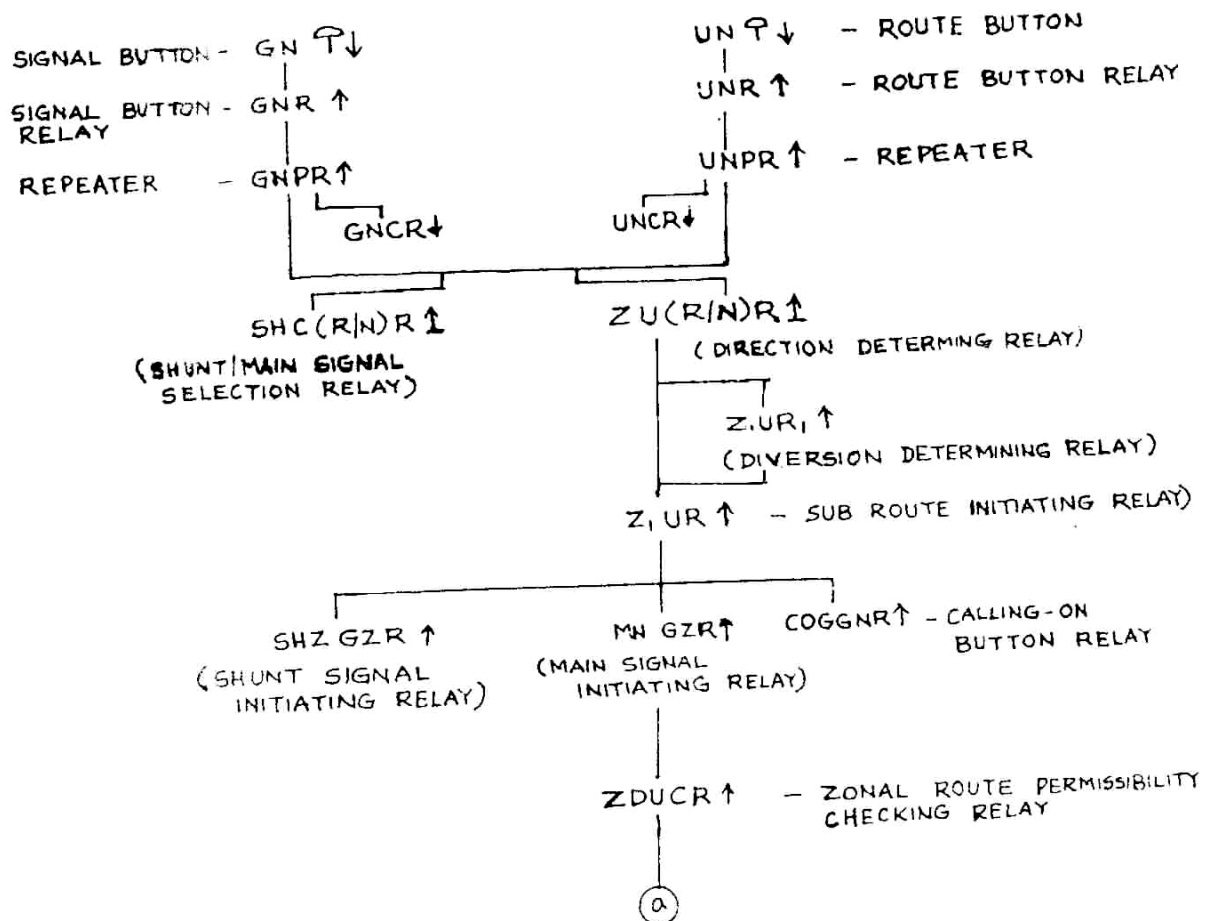 SIGNAL BUTTON - GN ↓
UN ↓ - ROUTE BUTTON
SIGNAL BUTTON - GNR ↑
RELAY
UNR ↑ - ROUTE BUTTON RELAY
REPEATER - GNPR ↑
UNPR ↑ - REPEATER
GNCR↓
UNCR↓
SHC(R/N)R
(SHUNT/MAIN SIGNAL
SELECTION RELAY)
ZU(R/N)R
(DIRECTION DETERMING RELAY)
Z₁UR₁ ↑
(DIVERSION DETERMINING RELAY)
Z₁UR ↑ - SUB ROUTE INITIATING RELAY)
SHZ GZR ↑
(SHUNT SIGNAL
INITIATING RELAY)
MN GZR↑
(MAIN SIGNAL
INITIATING RELAY)
COGGNR↑ - CALLING-ON
BUTTON RELAY
ZDUCR ↑ - ZONAL ROUTE PERMISSIBILITY
CHECKING RELAY
a